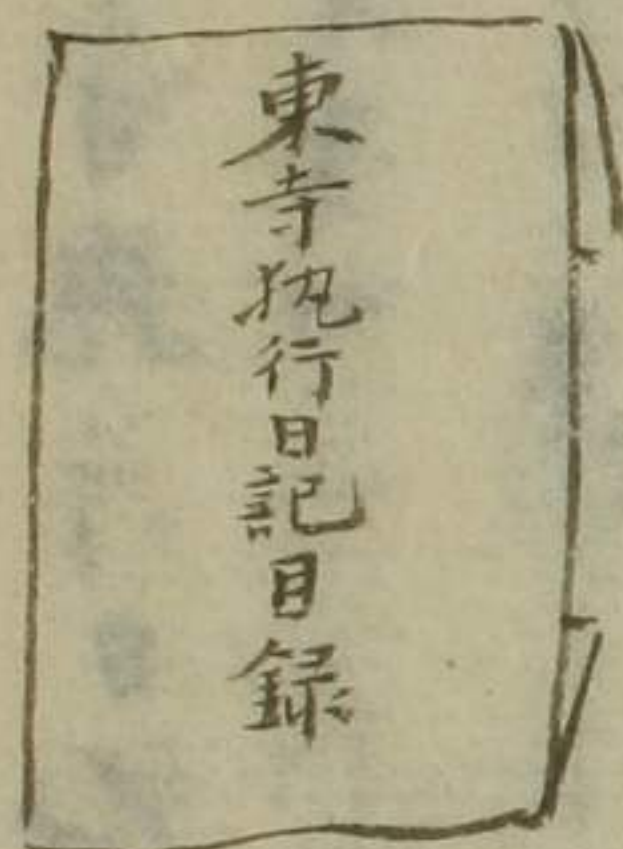 東寺執行日記目録